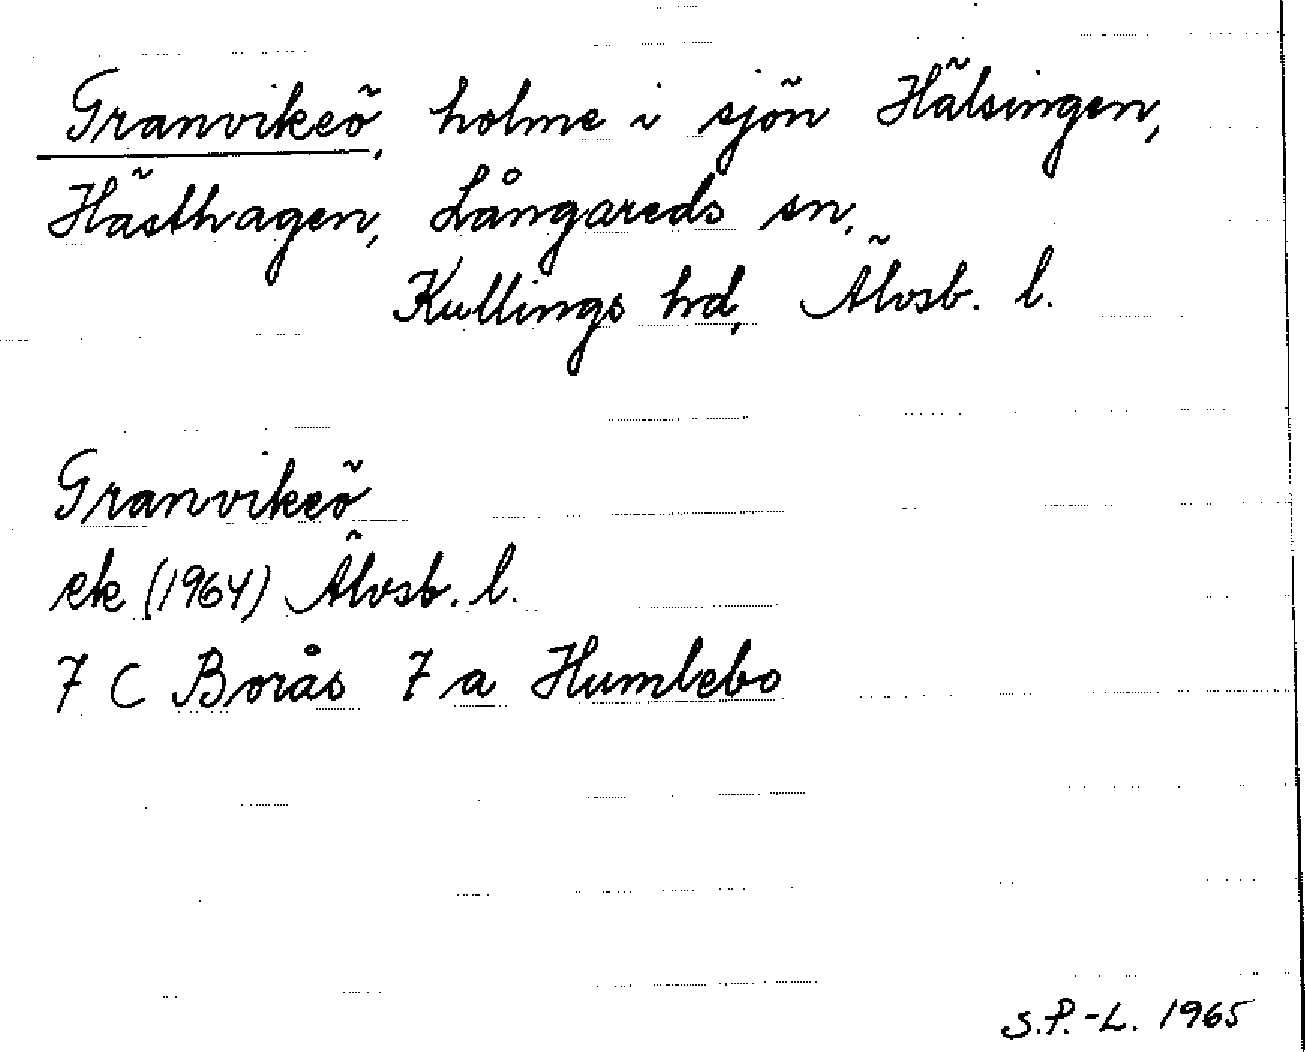 Granvikeö, holme i sjön Hälsingen,
Hästhagen, Långareds sn,
Kullings hrd, Älvsb. l.
Granvikeö
ek (1964) Älvsb. l.
7 C Borås 7 a Humlebo
S.P.-L. 1965